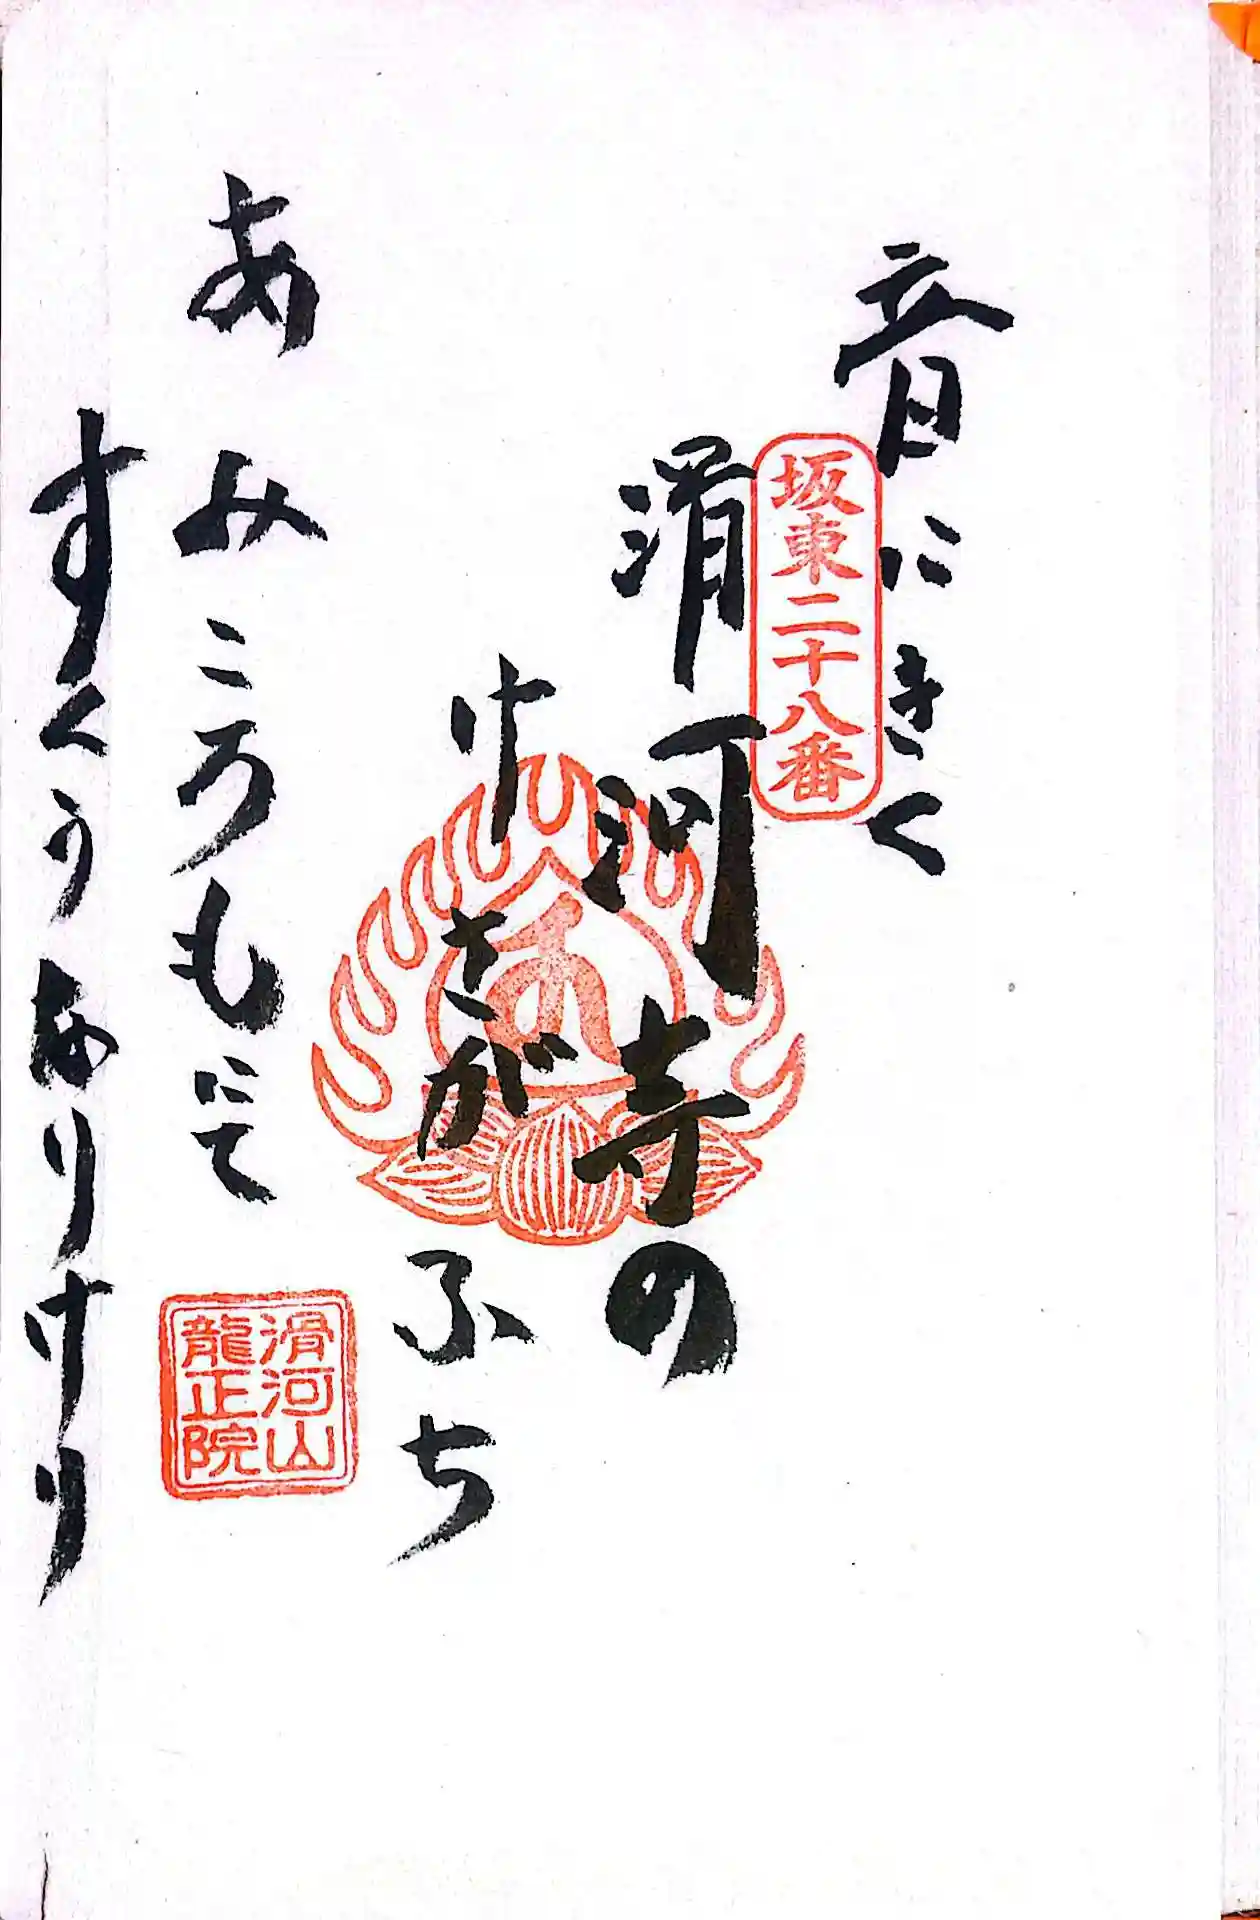 音にきく
坂東二十八番
滑河寺の
けさがふち
あみころもにて
すくうなりけり
滑河山
龍正院